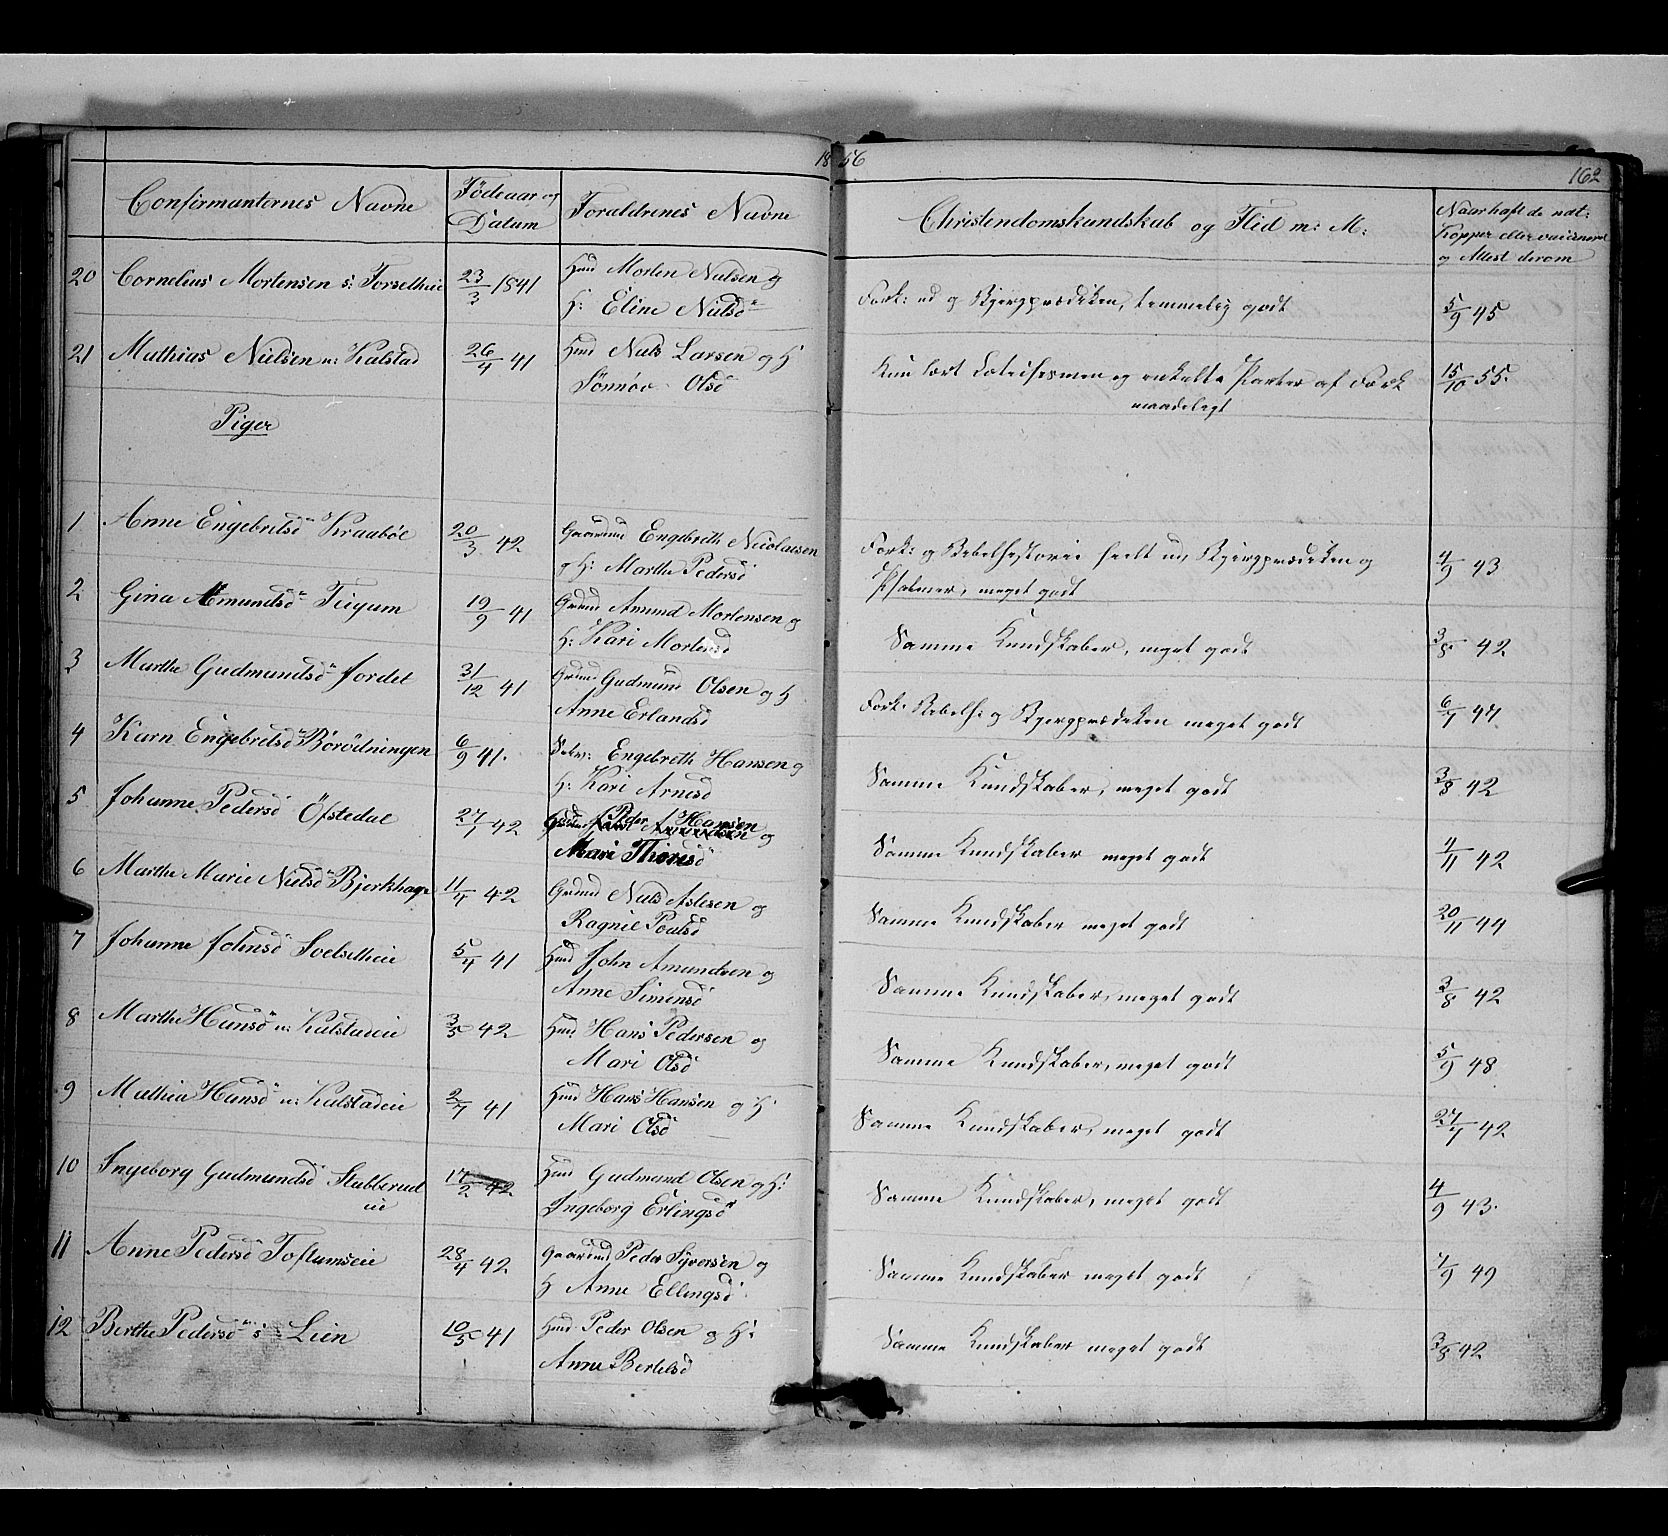 1856
162
Confirmanternes Navne
Fødeaar og Datum
Foraldrenes Navne
Christendomskundskab og Flid m: M:
Naar haft de nat: Kopper eller vaccineret og Attest derom
20 Cornelius Mortensen s: Forsetheie 23/3 1841 Hmd Morten Nielsen og
H: Eline Nielsd
Fork: ud og Bjergprædiken, temmelig godt 5/9 45
21 Mathias Nielsen u: Kalstad 26/4 41 Hmd Niels Larsen og H
Sønnøv Olsd
Kun lært Catechismen og enkelte Parter af Fork 15/10 55.
maadeligt
Piger
1 Anne Engebretsd Kraabøl 20/3 42 Gaarmd Engebreth Nicolaisen
og H: Marthe Pedersd
Fork: og Bibelhistorie heelt ud, Bjergprædiken og 4/9 43
Psalmer, meget godt
2 Gina Amundsd Tiigum 19/9 41 Grmd Amund Mortensen og
H: Kari Mortensd
Samme Kundskaber, meget godt 3/8 42
3 Marthe Gudmundsd Jordet 31/12 41 Grmd Gudmund Olsen og H
Anne Erlandsd
Fork: Bibelh: og Bjergprædiken meget godt 6/7 47
4 Karn Engebretsd 6/9 41. Selv: Engebreth Hansen og
H: Kari Arnesd
Samme Kundskaber, meget godt 3/8 42
5 Johanne Pedersd Öfstedal 27/1 42 Peder Hansen og
Mari Thoresd
Samme Kundskaber meget godt 4/11 42
6 Marthe Marie Nielsd Bjerkhage 11/4 42 Grmd Niels Aslesen og
Ragnil Poulsd
Samme Kundskaber meget godt 20/11 44
7 Johanne Johnsd Soelsetheie 5/4 41 Hmd John Amundsen og
Anne Simensd
Samme Kundskaber, meget godt 3/8 42
8 Marthe Hansd u: Kalstadeie 3/5 42 Hmd Hans Pedersen og
Mari Olsd
Samme Kundskaber, meget godt 5/9 48
9 Mathia Hansd u: Kalstadeie 2/7 41 Hmd Hans Hansen og H
Mari Olsd
Samme Kundskaber, meget godt 27/7 42
10 Ingeborg Gudmundsd Stubberud 17/2 42 Hmd Gudmund Olsen og H:
eie
Ingeborg Erlingsd
Samme Kundskaber, meget godt 4/9 43.
11 Anne Pedersd Toftumseie 28/4 42 Gaarmd Peder Syversen og
H Anne Ellingsd
Samme Kundskaber meget godt 7/9 49
12 Berthe Pedersd s: Lien 10/5 41 Hmd Peder Olsen og H:
Anne Bertelsd
Samme Kundskaber meget godt 3/8 42